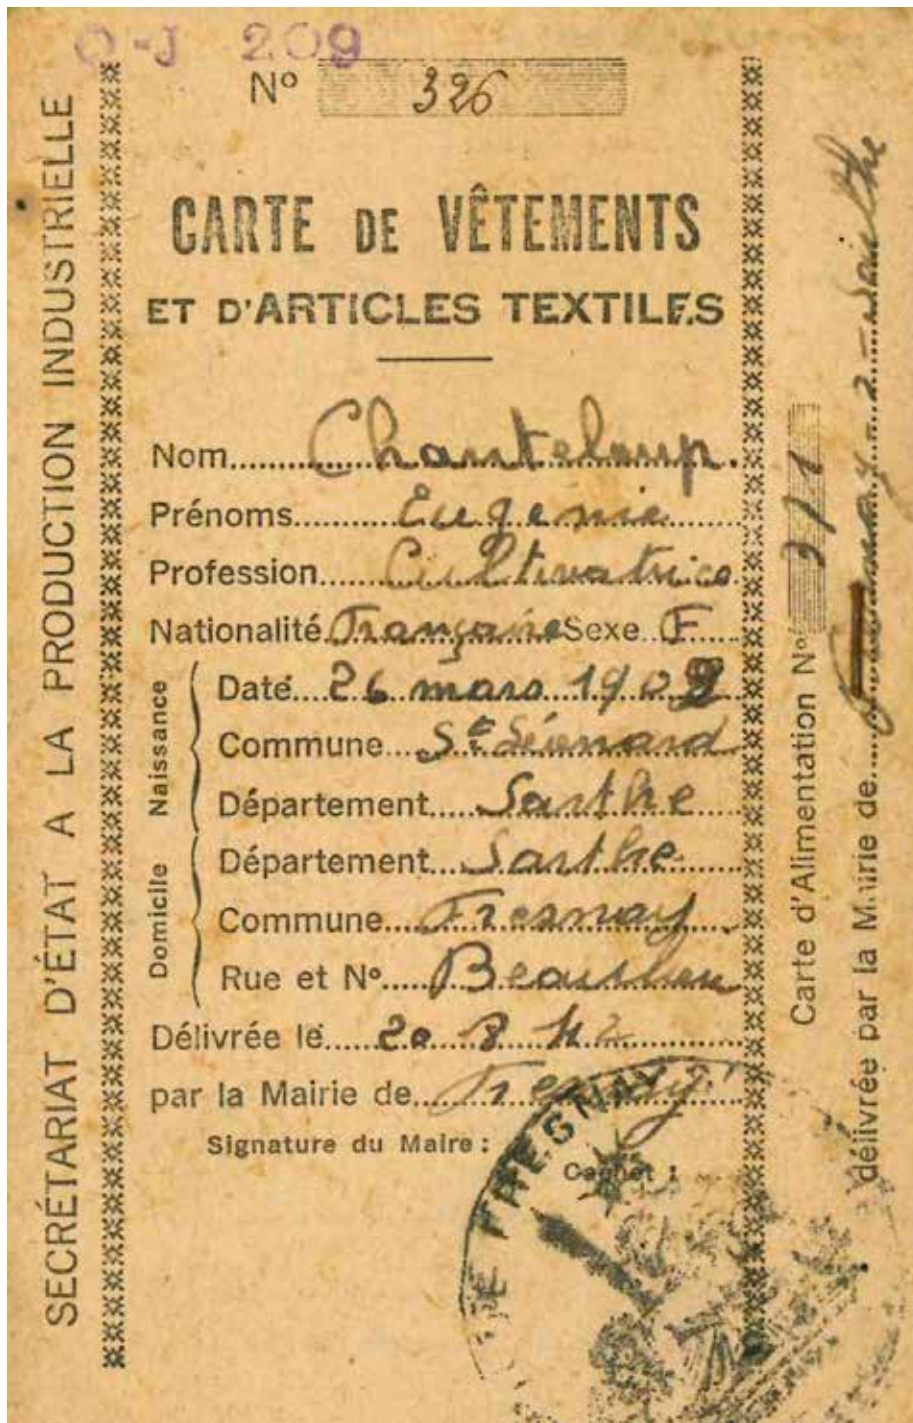 O-J 209
N° 326
SECRÉTARIAT D'ÉTAT A LA PRODUCTION INDUSTRIELLE
CARTE DE VÊTEMENTS
ET D'ARTICLES TEXTILES
Nom Chanteloup.
Prénoms Eugenie
Profession Cultivatrice
Nationalité Française Sexe F
Naissance
Date 26 mars 1902
Commune St Léonard
Département Sarthe
Domicile
Département Sarthe
Commune Fresnay
Rue et N° Beaulieu
Délivrée le 20 8 42
par la Mairie de Fresnay
Signature du Maire :
Cachet :
DE FRESNAY
Carte d'Alimentation N°
délivrée par la Mairie de Fresnay-s-Sarthe